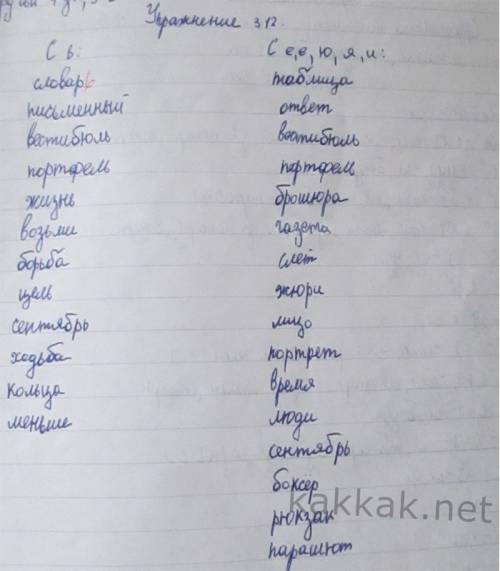 Упражнение 312.
С ь:
словарь
письменный
вестибюль
портфель
жизнь
возьми
борьба
цель
сентябрь
ходьба
кольца
меньше
С е, ё, ю, я, и:
таблица
ответ
вестибюль
портфель
брошюра
газета
слёт
жюри
лицо
портрет
время
люди
сентябрь
боксёр
рюкзак
парашют
kakkak.net